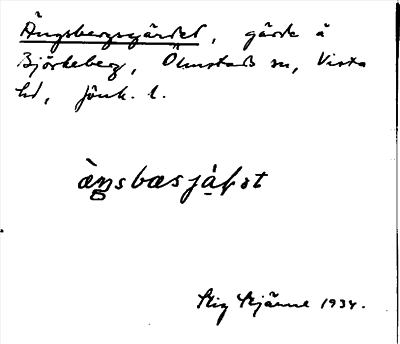 Ängsbergsgärdet, gärde å
Björkeberg, Ölmstads sn, Vista
hd, Jönk. l.
Stig Stjärne 1934.